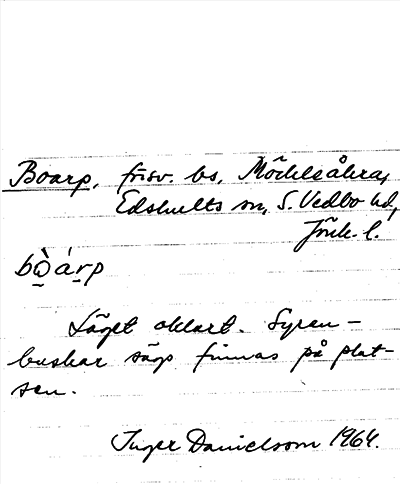 Boarp, försv. bs, Möckelsåkra,
Edshults sn, S. Vedbo hd,
Jönk. l.
bo̱̊̀ áṟp
Läget oklart. Syren-
buskar sägs finnas på plat-
sen.
Inger Danielsson 1964.